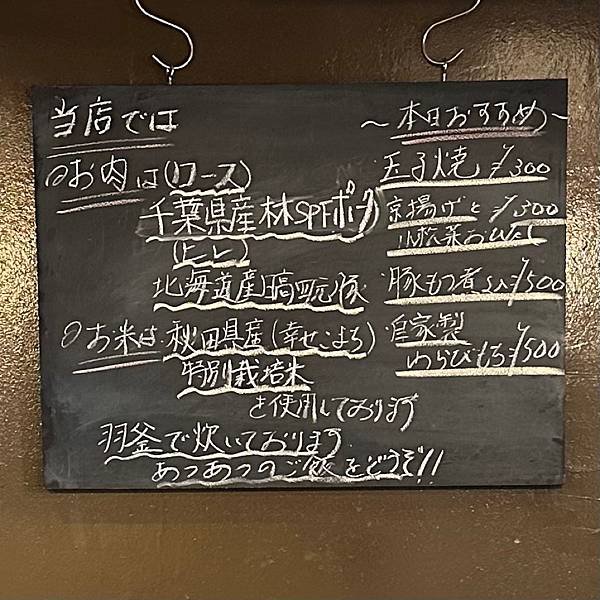 当店では
◎お肉は(ロース)
千葉県産林SPFポーク
(ヒレ)
北海道産
◎お米は秋田県産(幸せこまち)
特別栽培米
を使用しております
羽釜で炊いております
あつあつのご飯をどうぞ!!
~本日おすすめ~
玉子焼 ¥300
京揚げと ¥300
小松菜おひたし
豚もつ煮込 ¥500
自家製
わらびもち ¥500